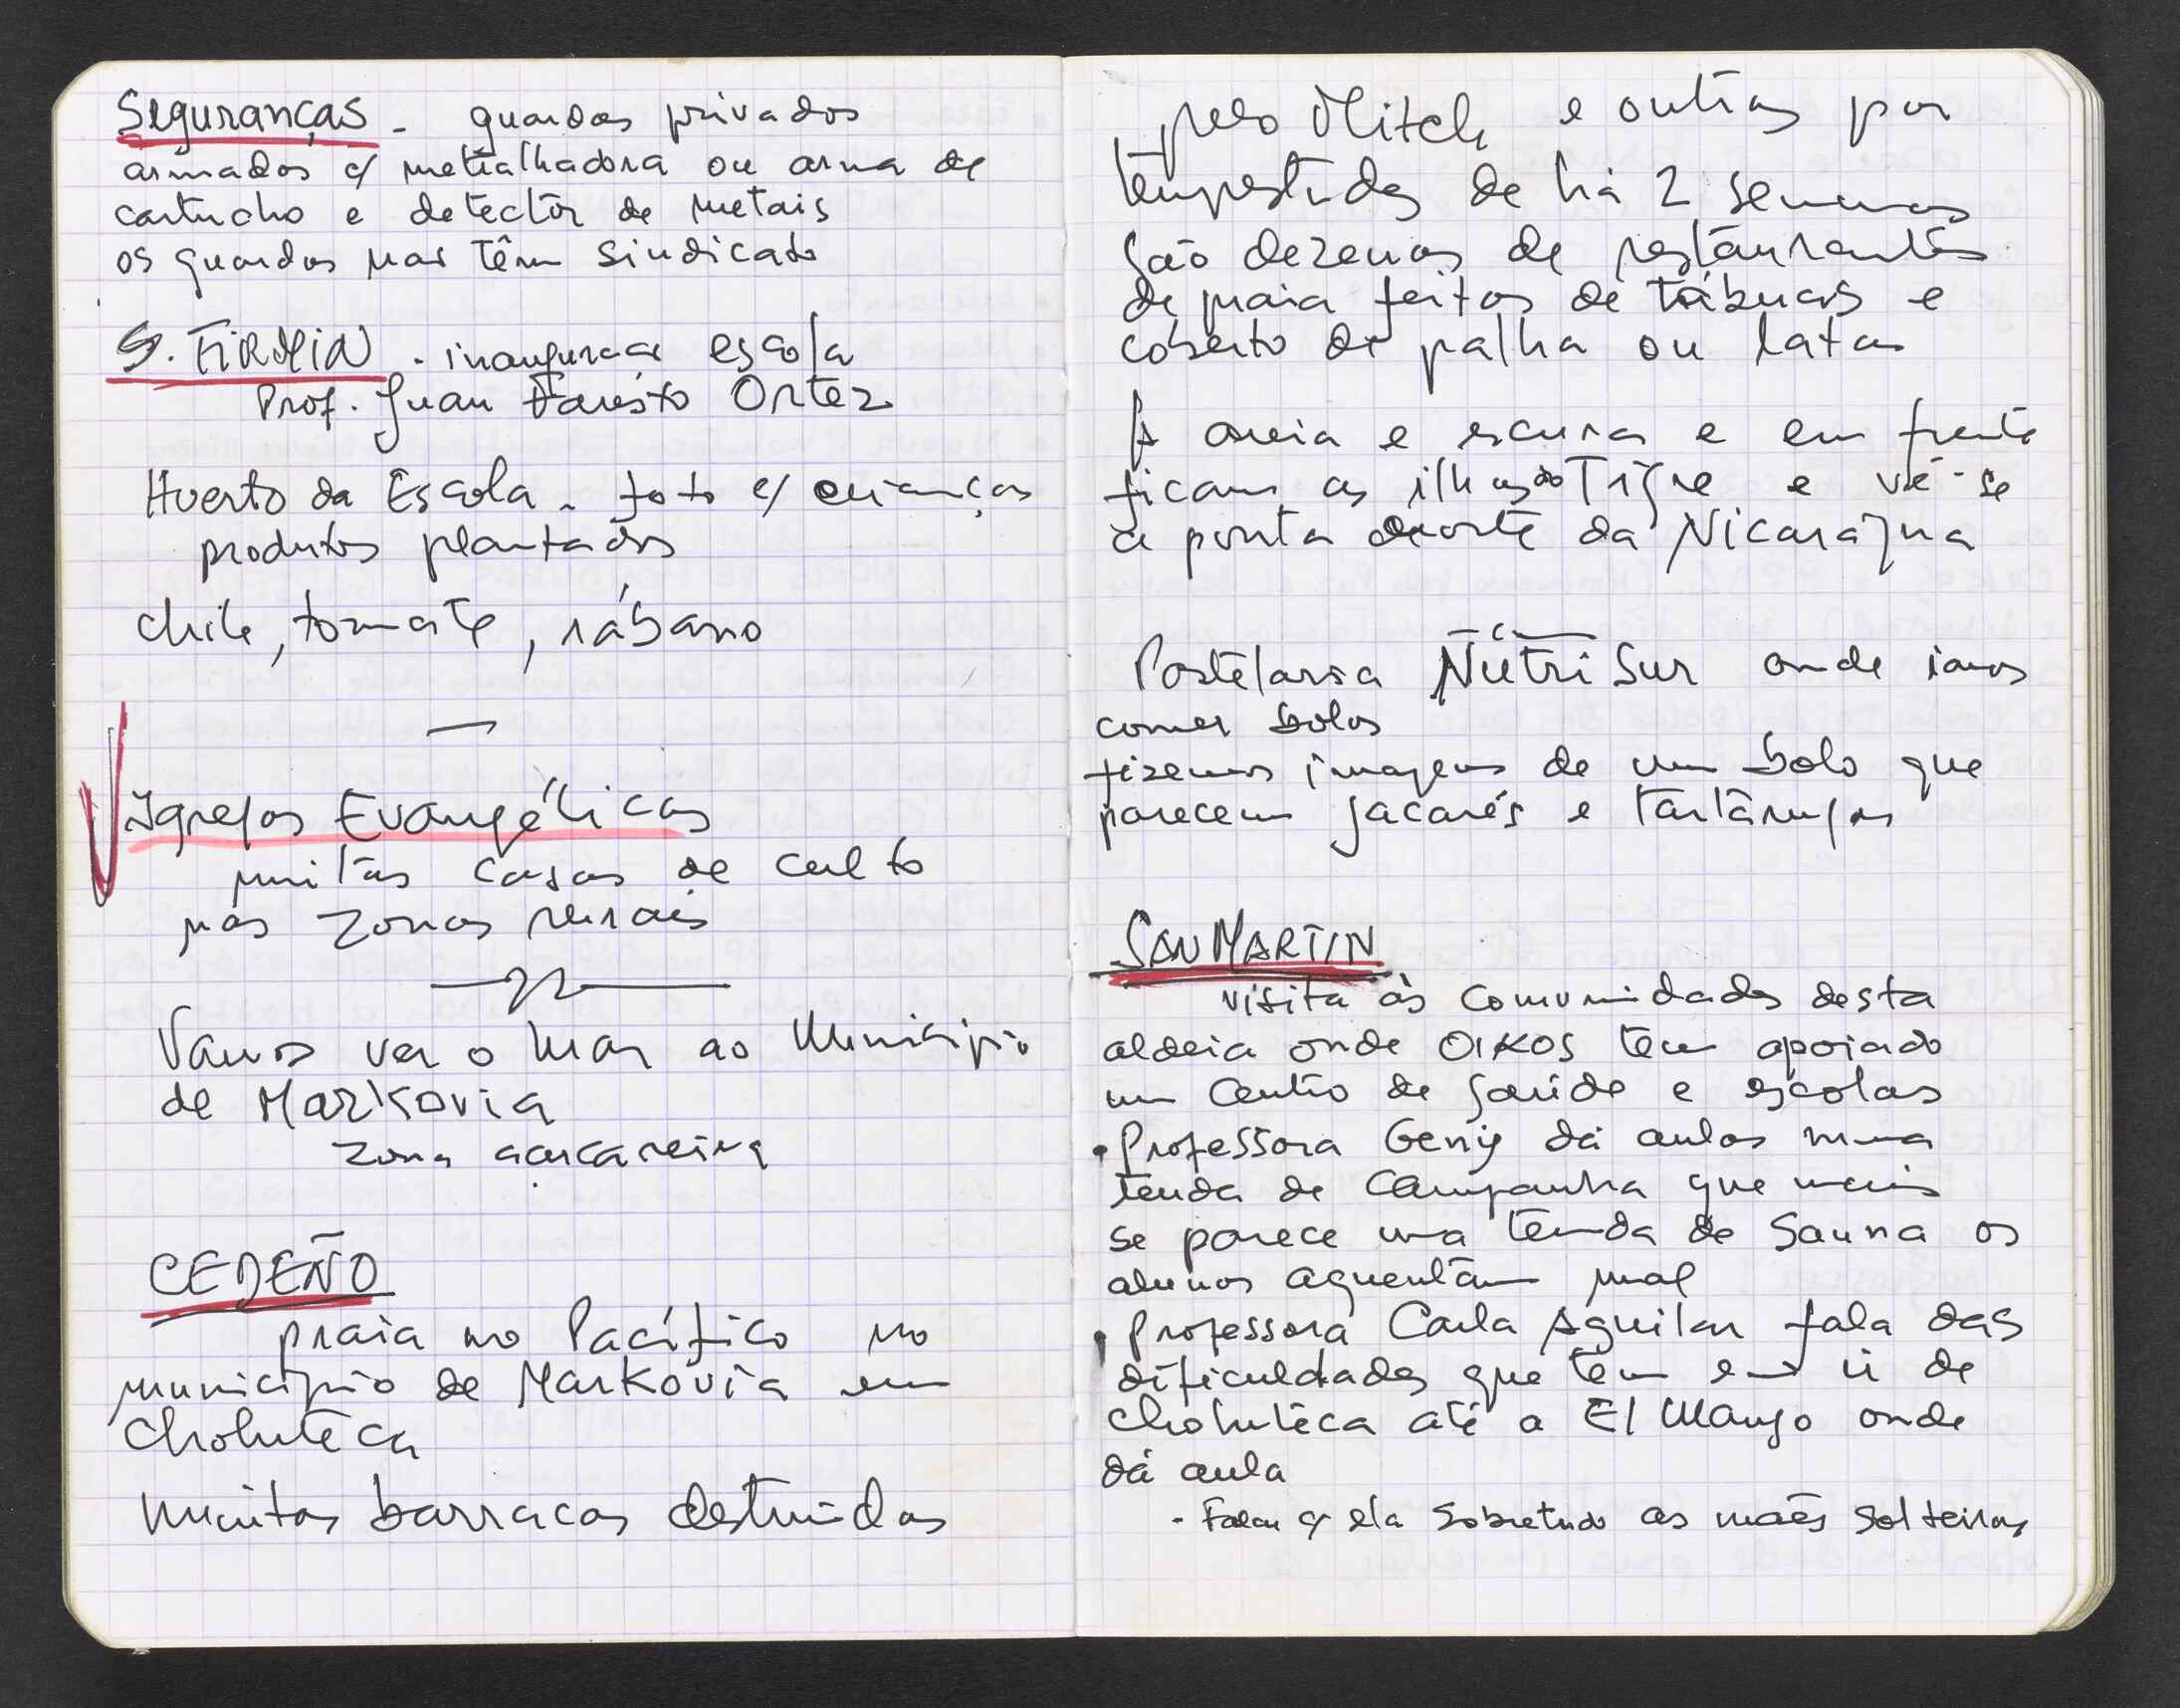 Seguranças - guardas privados
armados c/ metralhadora ou arma de
cartucho e detector de metais
os guardas nas têm sindicato
S. FIRMIN - inaugurar escola
Prof. Juan Fausto Ortez
Huerto da Escola - foto c/ crianças
produtos plantados
chile, tomate, rábano
—
Igrejas Evangélicas
muitas casas de culto
nas zonas rurais
Vamos ver o mar ao Município
de Markovia
zona açucareira
CEDEÑO
praia no Pacífico no
município de Markovia em
Choluteca
Muitas barracas destruidas
pelo Mitch e outras por
tempestades de há 2 semanas
São dezenas de restaurantes
de praia feitos de tábuas e
coberto de palha ou latas
A areia e escura e em frente
ficam as ilhas do Tigre e vê-se
a ponta norte da Nicarágua
Pastelaria NutriSur onde iamos
comer bolos
fizemos imagens de um bolo que
parecem jacarés e tartarugas
SAN MARTIN
visita às comunidades desta
aldeia onde OIKOS tem apoiado
um Centro de Saúde e escolas
• Professora Geny dá aulas numa
tenda de campanha que mais
se parece uma tenda de Sauna os
alunos aguentam mal
• Professora Carla Aguilar fala das
dificuldades que tem em ir de
Choluteca até a El Mango onde
dá aula
- Falar c/ ela sobretudo as mães solteiras